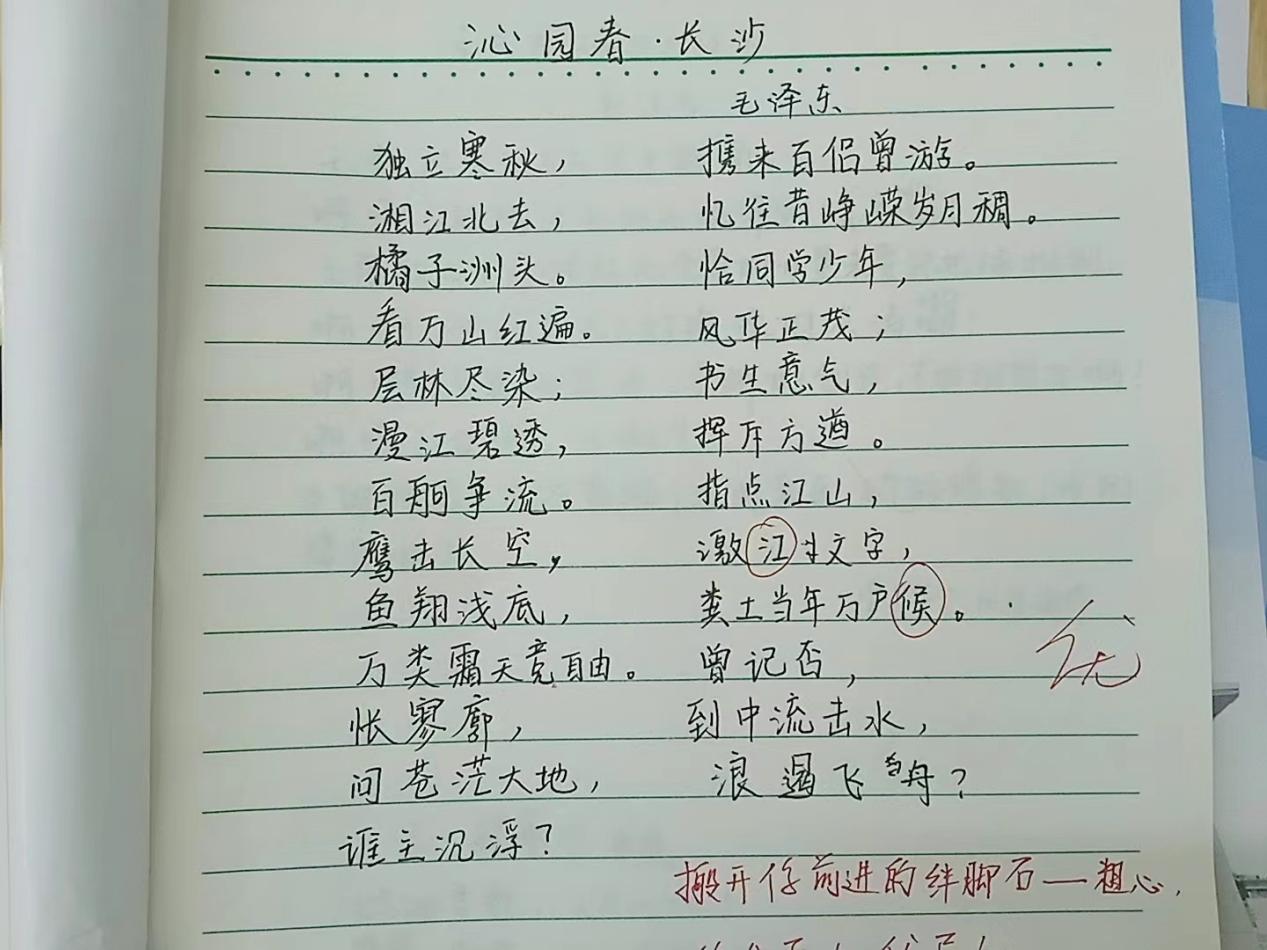 沁园春·长沙
毛泽东
独立寒秋，
湘江北去，
橘子洲头。
看万山红遍。
层林尽染；
漫江碧透，
百舸争流。
鹰击长空，
鱼翔浅底，
万类霜天竞自由。
怅寥廓，
问苍茫大地，
谁主沉浮？
携来百侣曾游。
忆往昔峥嵘岁月稠。
恰同学少年，
风华正茂；
书生意气，
挥斥方遒。
指点江山，
激江文字，
粪土当年万户候。
曾记否，
到中流击水，
浪遏飞舟？
优
搬开你前进的绊脚石——粗心.